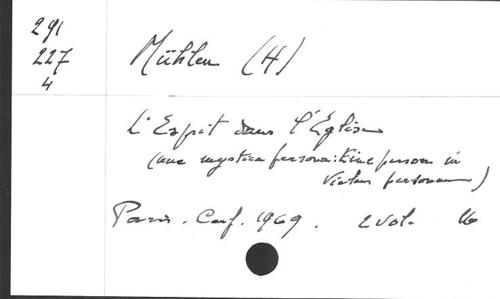 291
227
4
Mühlen (H)
L'Esprit dans l'Église
(una mystica persona: Eine person in
vielen personen)
Paris. Cerf. 1969. 2 vol. 16